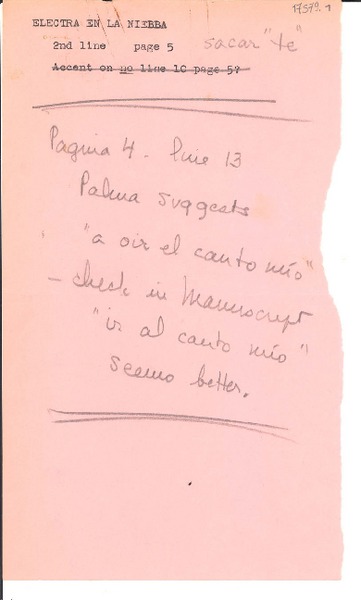 17579-1
ELECTRA EN LA NIEBBA
2nd line page 5 sacar "te"
Accent on no line 10 page 5?
Pagina 4 - line 13
Palma suggests
"a oir el canto mío"
- check in Manuscript
"ir al canto mío"
seems better.